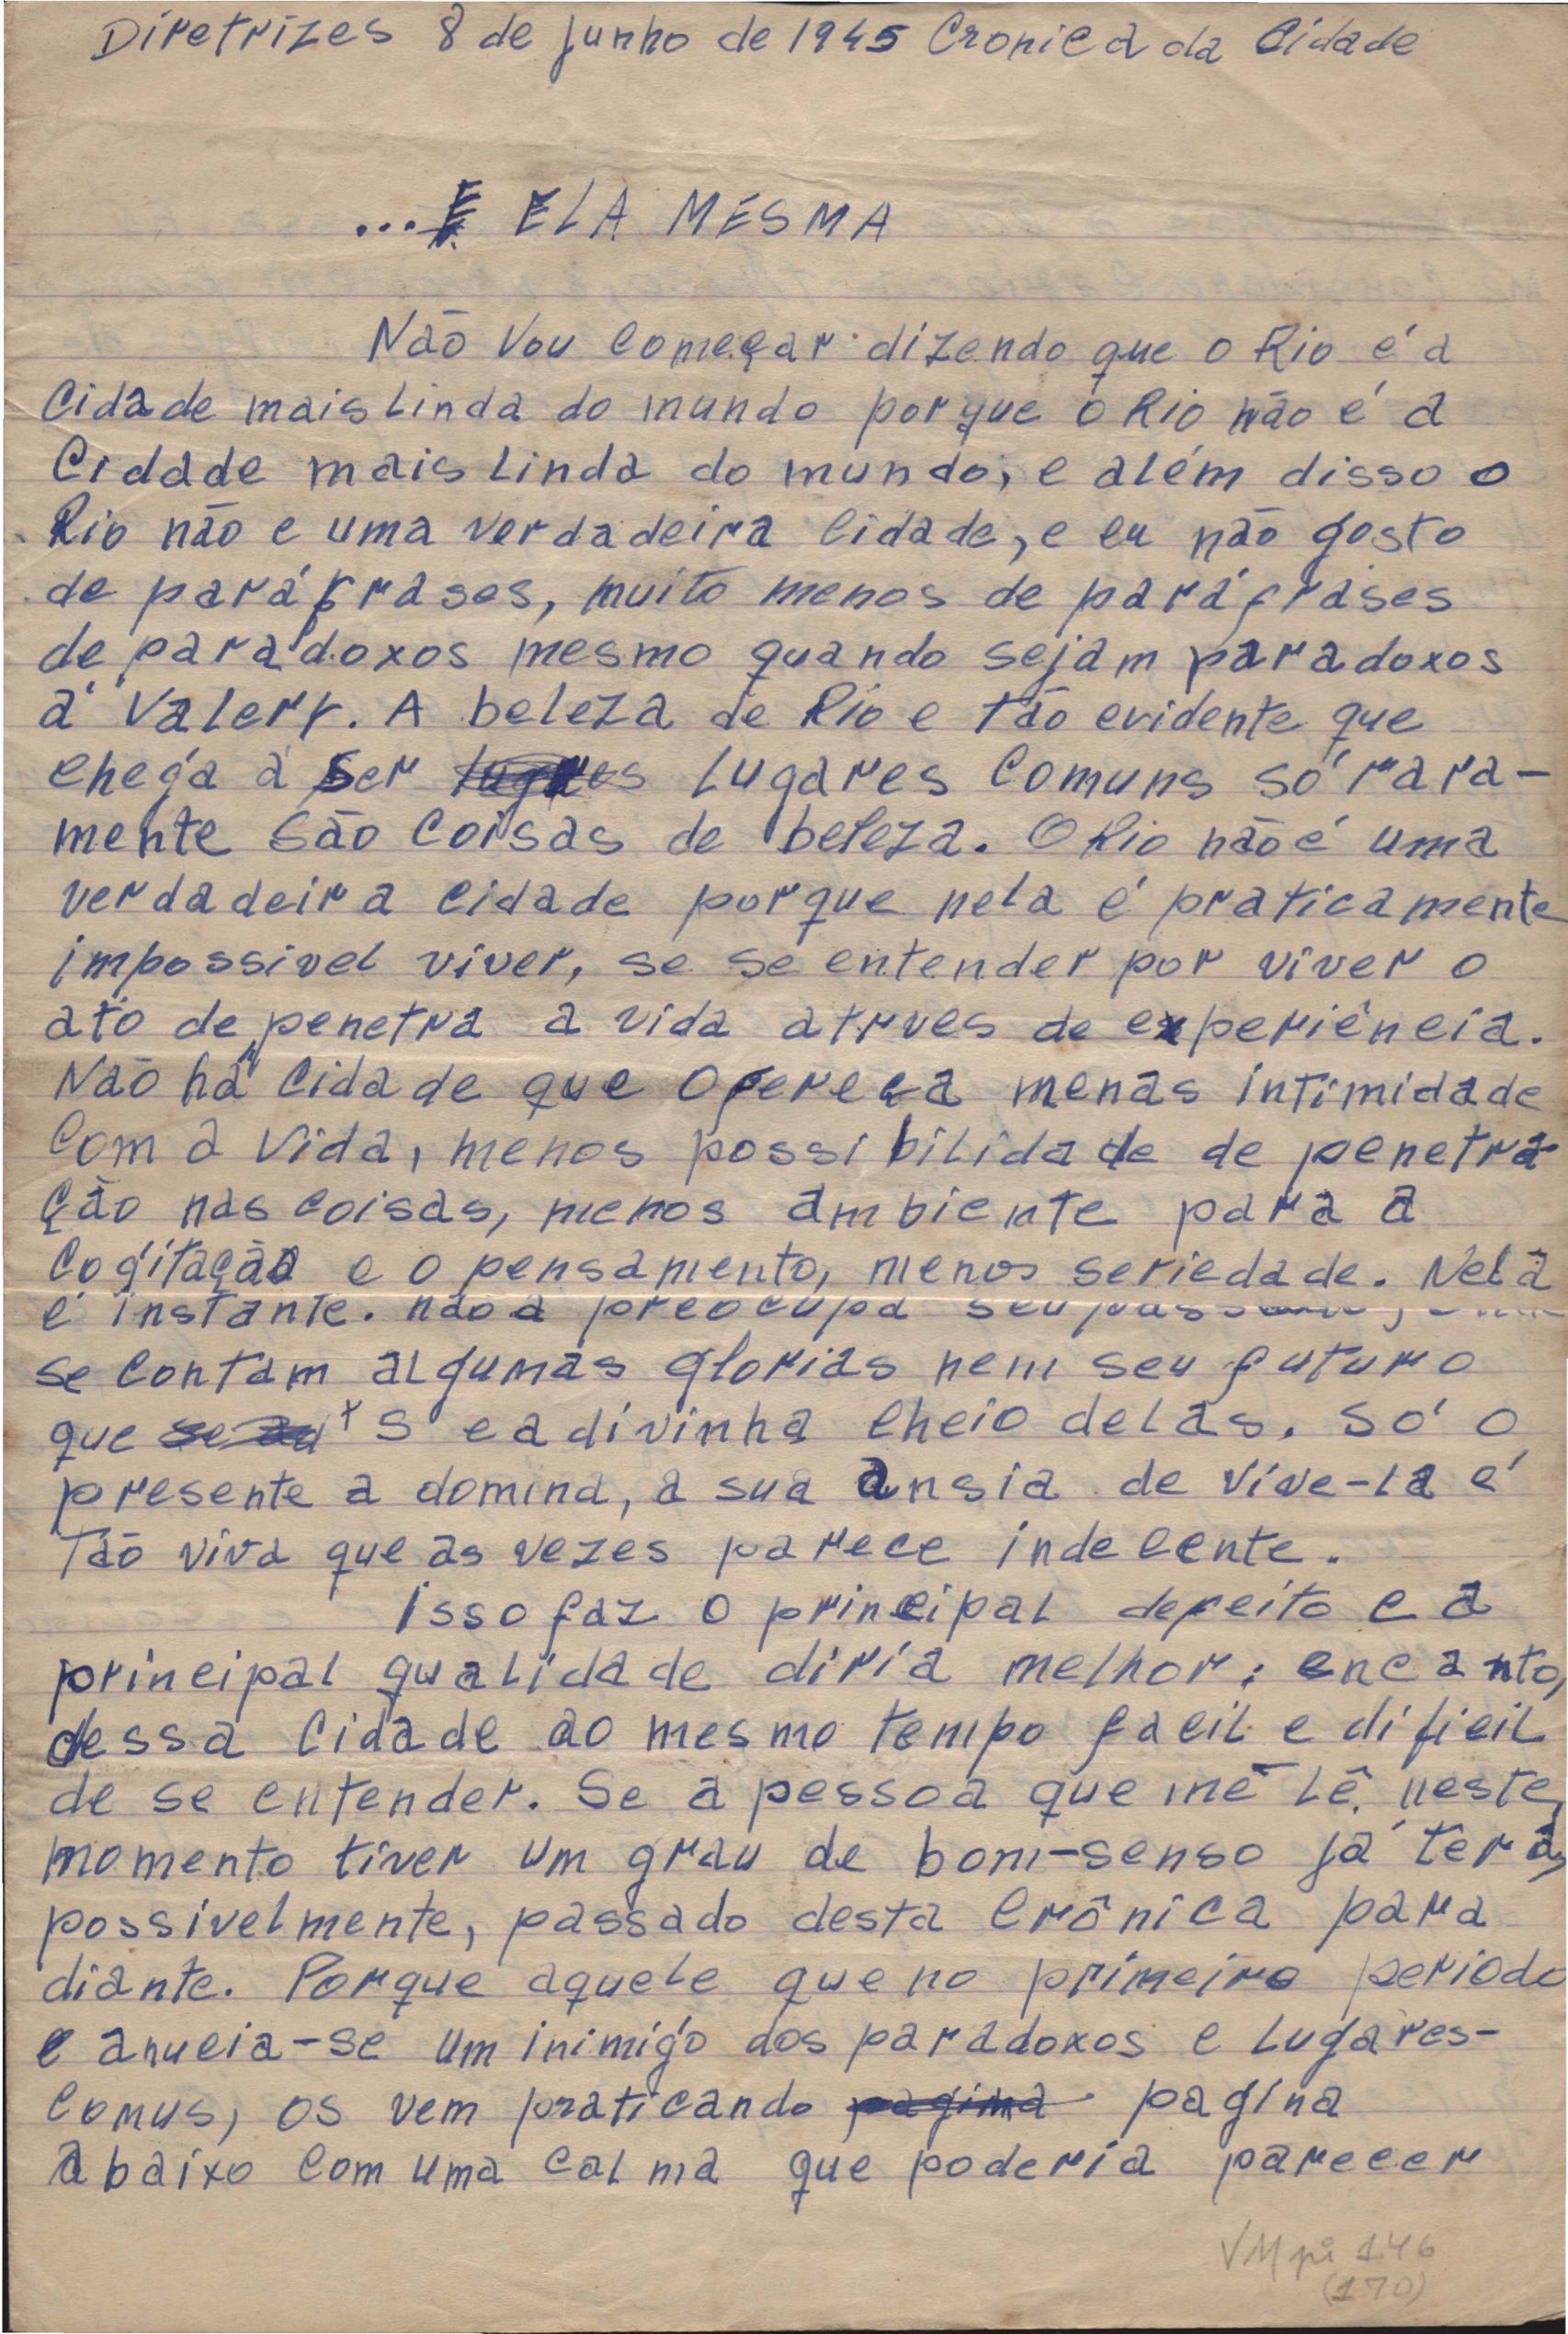 Diretrizes 8 de Junho de 1945 Cronica da Cidade
... E ELA MESMA
Não vou começar dizendo que o Rio é a
cidade mais linda do mundo porque o Rio não é a
cidade mais linda do mundo, e além disso o
Rio não e uma verdadeira cidade, e eu não gosto
de paráfrases, muito menos de paráfrases
de paradoxos mesmo quando sejam paradoxos
á Valery. A beleza de Rio e tão evidente que
chega a ser lugares comuns só rara-
mente são coisas de beleza. O Rio não é uma
verdadeira cidade porque nela é praticamente
impossivel viver, se se entender por viver o
ato de penetra a vida atrves de experiência.
Não há cidade que ofereça menas intimidade
com a vida, menos possibilidade de penetra-
ção nas coisas, menos ambiente para a
cogitação e o pensamento, menos seriedade. Nela
é instante. não a preocupa seu
se contam algumas glorias nem seu futuro
que s eadivinha cheio delas. só o
presente a domina, a sua ansia de vive-la é
tão viva que as vezes parece indecente.
Isso faz o principal defeito e a
principal qualidade diria melhor: encanto,
dessa cidade ao mesmo tempo facil e dificil
de se entender. Se a pessoa que me lê neste
momento tiver um grau de bom-senso já terá,
possivelmente, passado desta crônica para
diante. Porque aquele que no primeiro periodo
e anucia-se um inimigo dos paradoxos e lugares-
comus, os vem praticando pagina pagina
abaixo com uma calma que poderia parecer
VM pi 146
(170)